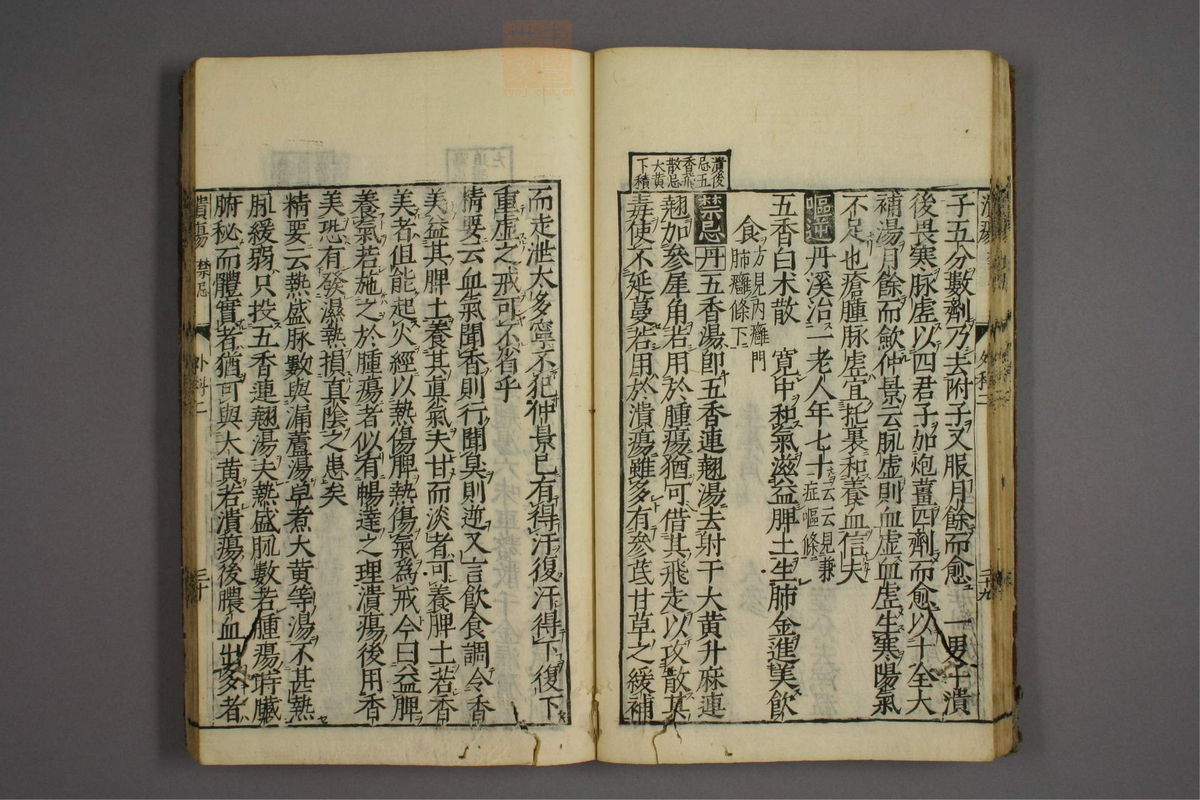 潰後
忌五
香忌
散忌
大黄
下積
子五分數劑乃去附子又服月餘而愈 一男子潰
後畏寒脉虛以四君子如炮薑四劑而愈以十全大
補湯月餘而歛仲景云脉虛則血虛血虛生寒陽氣
不足也瘡腫脉虛宜托裏和養血信夫
嘔逆 丹溪治一老人年七十云云見兼症嘔條
五香白术散 寬中和氣滋益脾土生肺金進美飲
食 方見内癰門肺癰條下
禁忌 丹 五香湯即五香連翹湯去射干大黄升麻連
翹加參犀角若用於腫瘍猶可借其飛走以攻散其
毒使不延蔓若用於潰瘍雖多有參芪甘草之緩補
外科二
二十九
而走泄太多寧不犯仲景巳有得汗復汗得下復下
重虛之戒可不省乎
精要云血氣聞香則行聞臭則逆又言飲食調令香
美益其脾土養其眞氣夫甘而淡者可養脾土若香
美者但能起火經以熱傷脾熱傷氣爲戒今曰益脾
養氣若施之於腫瘍者似有暢達之理潰瘍後用香
美恐有發濕熱損真陰之患矣
精要云熱盛脉數與漏蘆湯單煮大黄等湯不甚熱
脉緩弱只投五香連翹湯夫熱盛脉數若腫瘍時臓
腑秘而體實者猶可與大黄若潰瘍後膿血出多者
潰瘍 禁忌
外科二
三十